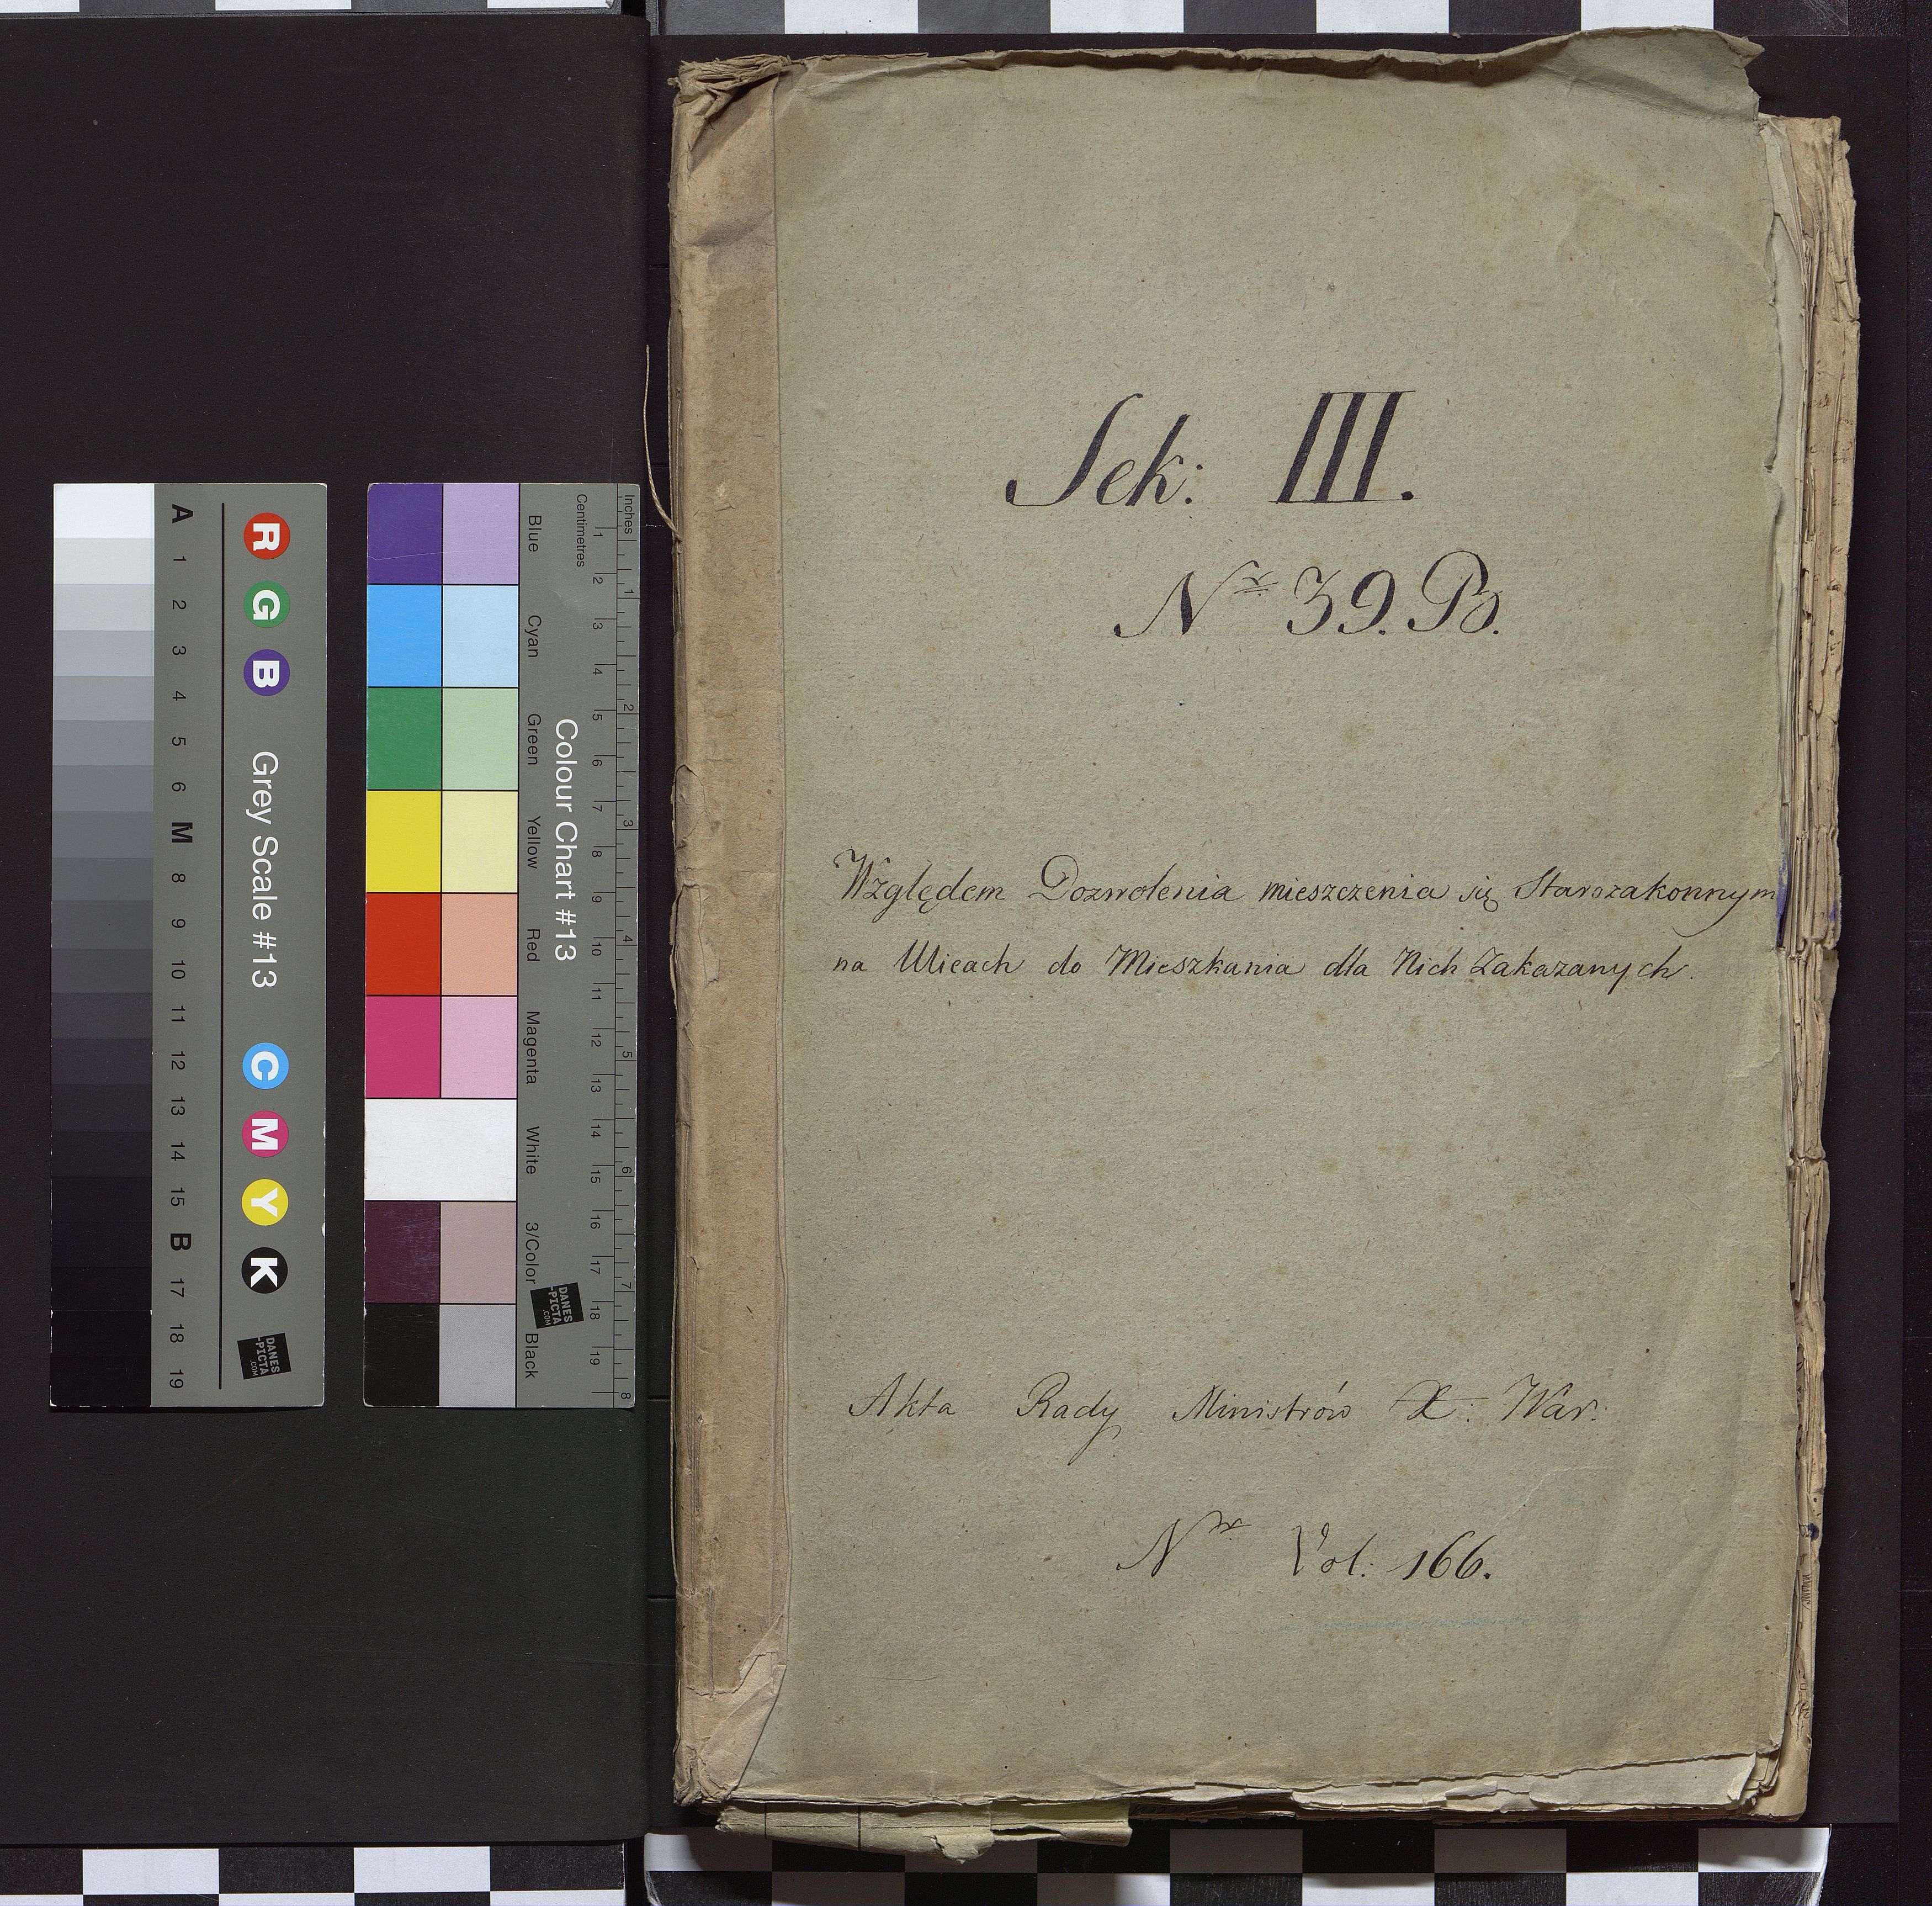 Sek: III.
Nr 39. B.
Względem Dozwolenia mieszczenia się Starozakonnym
na Ulicach do Mieszkania dla Nich Zakazanych.
Akta Rady Ministrów X. War:
Nr Vol: 166.
A 1 2 3 4 5 6 M 8 9 10 11 12 13 14 15 B 17 18 19
R G B Grey Scale #13 C M Y K
DANES
-PICTA
.COM
Blue Cyan Green Yellow Red Magenta White 3/Color Black
Colour Chart #13
DANES
-PICTA
.COM
Centimetres 1 2 3 4 5 6 7 8 9 10 11 12 13 14 15 16 17 18 19
Inches 1 2 3 4 5 6 7 8